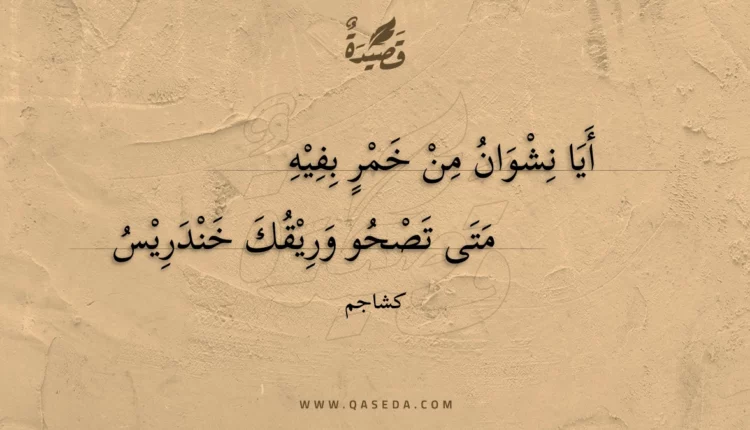 قَصِيْدَةٌ
أَيَا نِشْوَانُ مِنْ خَمْرٍ بِفِيْهِ
مَتَى تَصْحُو وَرِيْقُكَ خَنْدَرِيْسُ
كشاجم
WWW.QASEDA.COM